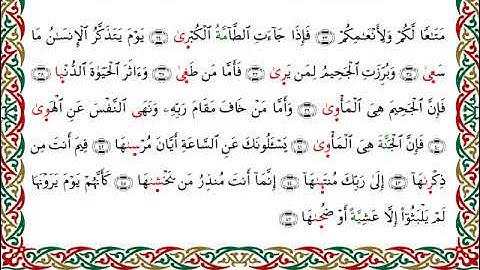 مَتَـٰعًا لَّكُمْ وَلِأَنْعَـٰمِكُمْ ٣٣ فَإِذَا جَآءَتِ ٱلطَّآمَّةُ ٱلْكُبْرَىٰ ٣٤ يَوْمَ يَتَذَكَّرُ ٱلْإِنسَـٰنُ مَا
سَعَىٰ ٣٥ وَبُرِّزَتِ ٱلْجَحِيمُ لِمَن يَرَىٰ ٣٦ فَأَمَّا مَن طَغَىٰ ٣٧ وَءَاثَرَ ٱلْحَيَوٰةَ ٱلدُّنْيَا ٣٨
فَإِنَّ ٱلْجَحِيمَ هِىَ ٱلْمَأْوَىٰ ٣٩ وَأَمَّا مَنْ خَافَ مَقَامَ رَبِّهِۦ وَنَهَى ٱلنَّفْسَ عَنِ ٱلْهَوَىٰ
٤٠ فَإِنَّ ٱلْجَنَّةَ هِىَ ٱلْمَأْوَىٰ ٤١ يَسْـَٔلُونَكَ عَنِ ٱلسَّاعَةِ أَيَّانَ مُرْسَىٰهَا ٤٢ فِيمَ أَنتَ مِن
ذِكْرَىٰهَآ ٤٣ إِلَىٰ رَبِّكَ مُنتَهَىٰهَآ ٤٤ إِنَّمَآ أَنتَ مُنذِرُ مَن يَخْشَىٰهَا ٤٥ كَأَنَّهُمْ يَوْمَ يَرَوْنَهَا
لَمْ يَلْبَثُوٓا۟ إِلَّا عَشِيَّةً أَوْ ضُحَىٰهَا ٤٦